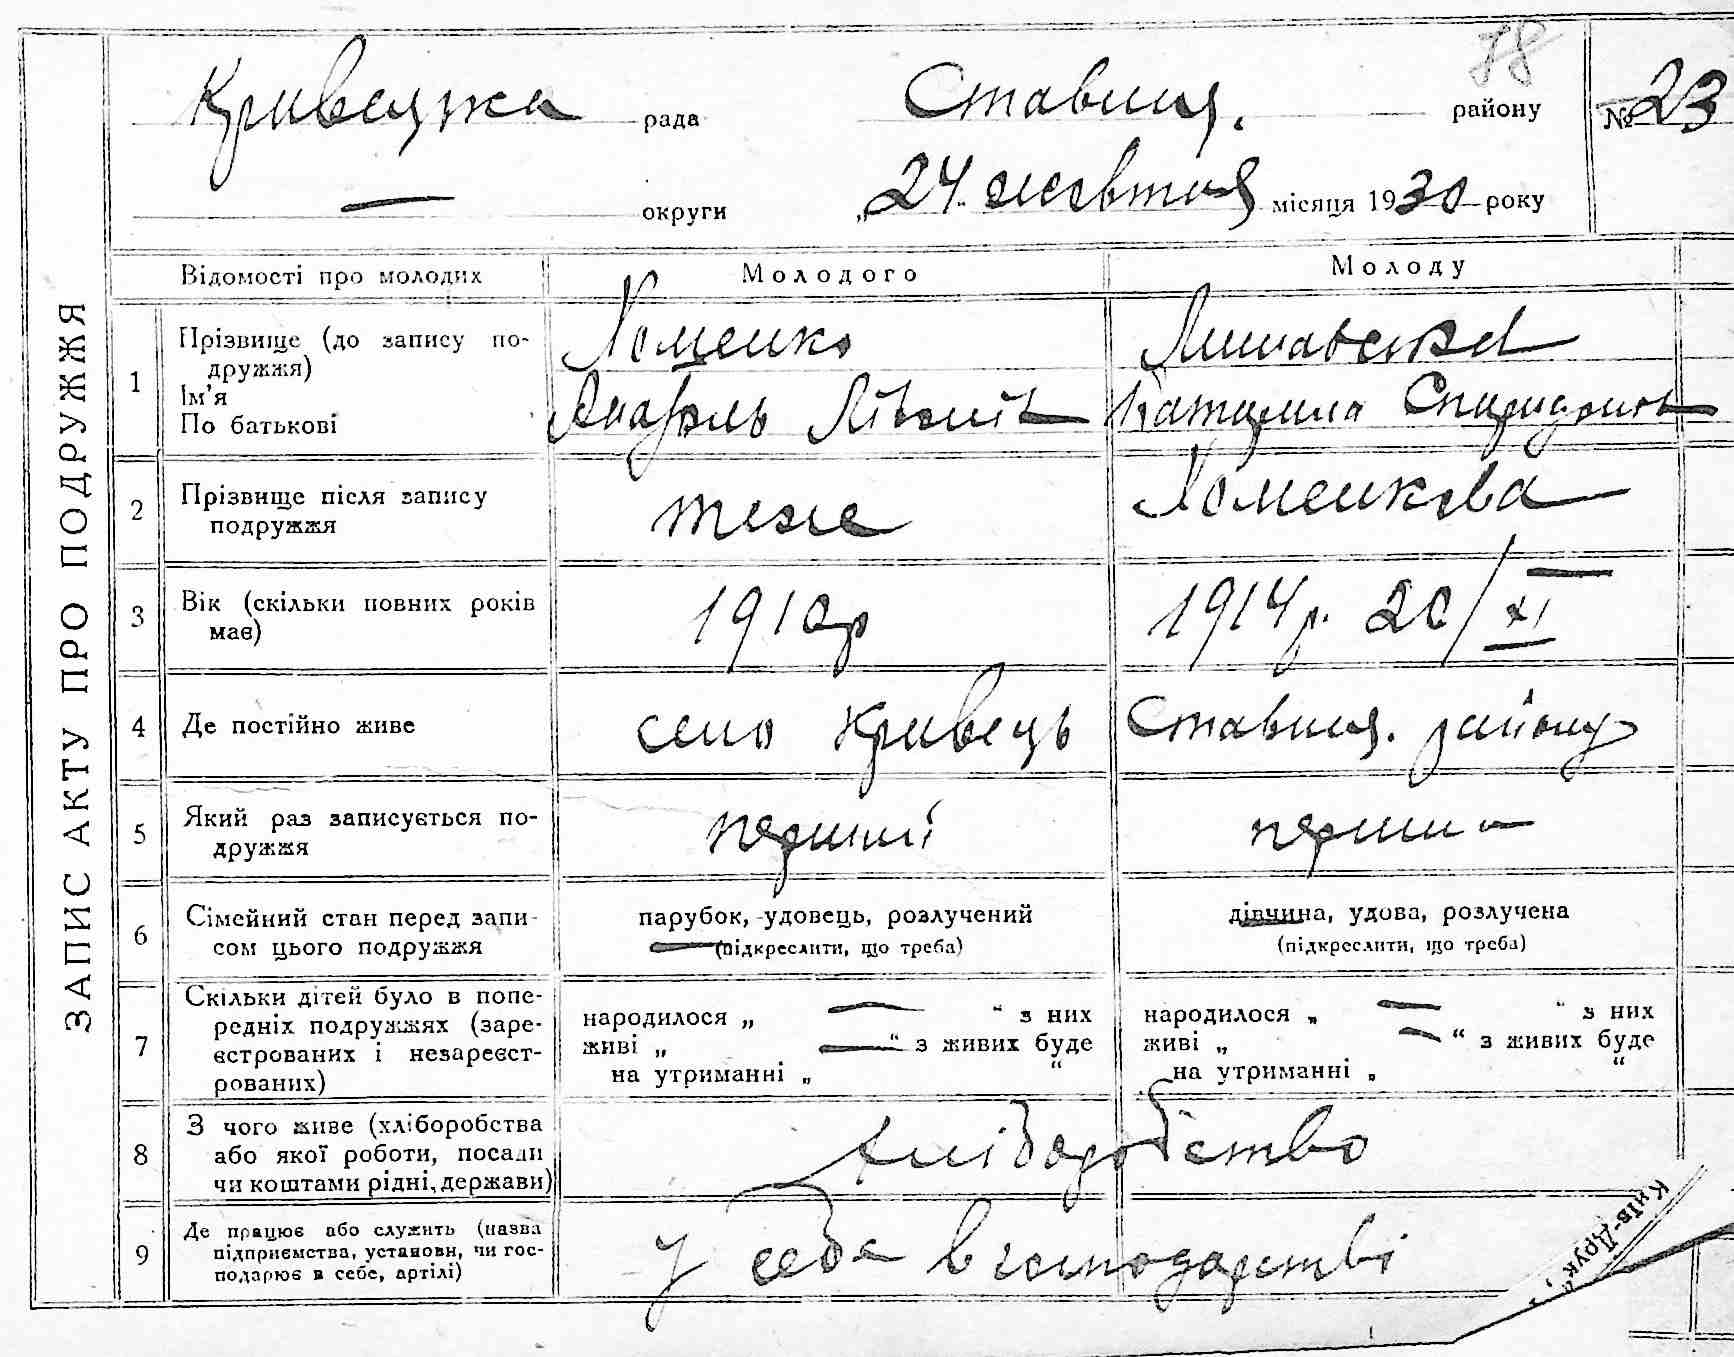 78
Кривецка рада Ставищ. району № 23
— округи „24" жовтня місяця 1930 року
ЗАПИС АКТУ ПРО ПОДРУЖЖЯ
Відомості про молодих Молодого Молоду
1 Прізвище (до запису по-
дружжя)
Ім'я
По батькові
Хоменко
Лишавська
Лівоні Катерина Спиридонів
2 Прізвище після запису
подружжя
теже Хоменкова
3 Вік (скільки повних років
має)
1910р 1914р. 20/XI
4 Де постійно живе село Кривець Ставищ. району
5 Який раз записується по-
дружжя
перший перший
6 Сімейний стан перед запи-
сом цього подружжя
парубок, удовець, розлучений
(підкреслити, що треба)
дівчина, удова, розлучена
(підкреслити, що треба)
7 Скільки дітей було в попе-
редніх подружжях (заре-
єстрованих і незареєст-
рованих)
народилося „ — " з них
живі „ — " з живих буде
на утриманні „ "
народилося „ — " з них
живі „ — " з живих буде
на утриманні „ "
8 З чого живе (хліборобства
або якої роботи, посади
чи коштами рідні, держави)
хліборобство
9 Де працює або служить (назва
підприємства, установи, чи гос-
подарює в себе, артілі)
у себе в господарстві
Київ-Друк"